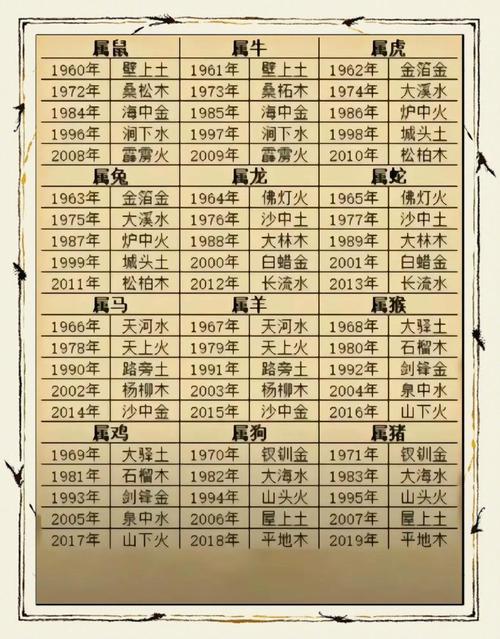 属鼠 属牛 属虎
1960年 壁上土 1961年 壁上土 1962年 金箔金
1972年 桑松木 1973年 桑柘木 1974年 大溪水
1984年 海中金 1985年 海中金 1986年 炉中火
1996年 涧下水 1997年 涧下水 1998年 城头土
2008年 霹雳火 2009年 霹雳火 2010年 松柏木
属兔 属龙 属蛇
1963年 金箔金 1964年 佛灯火 1965年 佛灯火
1975年 大溪水 1976年 沙中土 1977年 沙中土
1987年 炉中火 1988年 大林木 1989年 大林木
1999年 城头土 2000年 白蜡金 2001年 白蜡金
2011年 松柏木 2012年 长流水 2013年 长流水
属马 属羊 属猴
1966年 天河水 1967年 天河水 1968年 大驿土
1978年 天上火 1979年 天上火 1980年 石榴木
1990年 路旁土 1991年 路旁土 1992年 剑锋金
2002年 杨柳木 2003年 杨柳木 2004年 泉中水
2014年 沙中金 2015年 沙中金 2016年 山下火
属鸡 属狗 属猪
1969年 大驿土 1970年 钗钏金 1971年 钗钏金
1981年 石榴木 1982年 大海水 1983年 大海水
1993年 剑锋金 1994年 山头火 1995年 山头火
2005年 泉中水 2006年 屋上土 2007年 屋上土
2017年 山下火 2018年 平地木 2019年 平地木